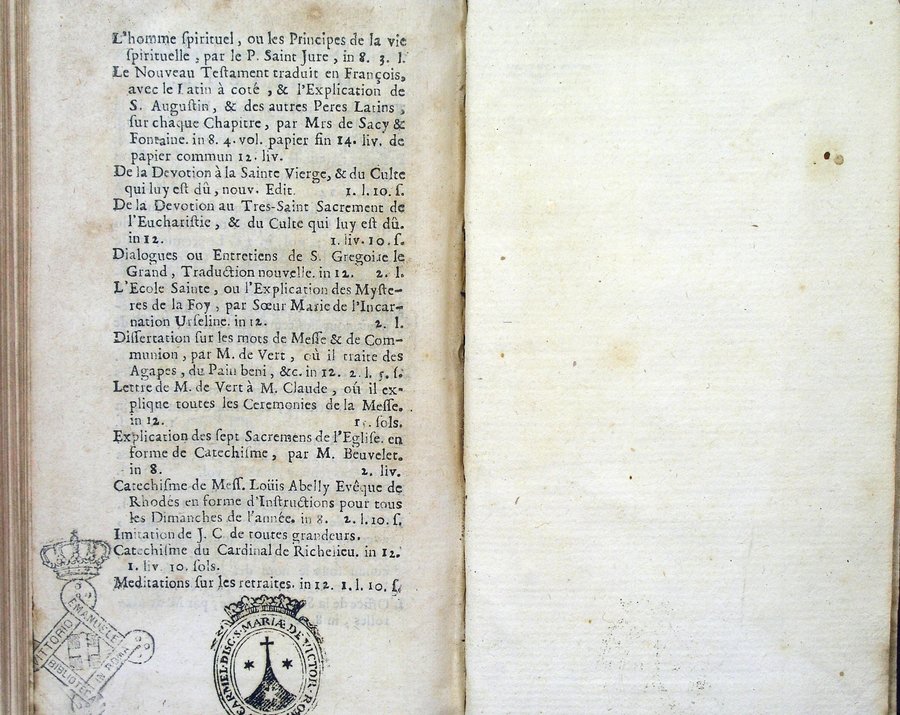 L'homme ſpirituel, ou les Principes de la vie
ſpirituelle, par le P. Saint Jure, in 8. 3. l.
Le Nouveau Teſtament traduit en François,
avec le Latin à coté, & l'Explication de
S. Auguſtin, & des autres Peres Latins,
ſur chaque Chapitre, par Mrs de Sacy &
Fontaine. in 8. 4. vol. papier fin 14. liv. de
papier commun 12. liv.
De la Devotion à la Sainte Vierge, & du Culte
qui luy eſt dû, nouv. Edit. 1. l. 10. ſ.
De la Devotion au Tres-Saint Sacrement de
l'Euchariſtie, & du Culte qui luy eſt dû.
in 12. 1. liv. 10. ſ.
Dialogues ou Entretiens de S. Gregoire le
Grand, Traduction nouvelle. in 12. 2. l.
L'Ecole Sainte, ou l'Explication des Myſte-
res de la Foy, par Sœur Marie de l'Incar-
nation Urſeline. in 12. 2. l.
Diſſertation ſur les mots de Meſſe & de Com-
munion, par M. de Vert, où il traite des
Agapes, du Pain beni, &c. in 12. 2. l. 5. ſ.
Lettre de M. de Vert à M. Claude, où il ex-
plique toutes les Ceremonies de la Meſſe.
in 12. ſols.
Explication des ſept Sacremens de l'Egliſe. en
forme de Catechiſme, par M. Beuvelet.
in 8. 2. liv.
Catechiſme de Meſſ. Loüis Abelly Evêque de
Rhodés en forme d'Inſtructions pour tous
les Dimanches de l'année. in 8. 2. l. 10. ſ.
Imitation de J. C. de toutes grandeurs.
Catechiſme du Cardinal de Richelieu. in 12.
1. liv. 10. ſols.
Meditations ſur les retraites. in 12. 1. l. 10. ſ.
VITTORIO EMANUELE
BIBLIOTECA
IN ROMA
CARMEL. DISC. S. MARIÆ DE VICTOR. ROM